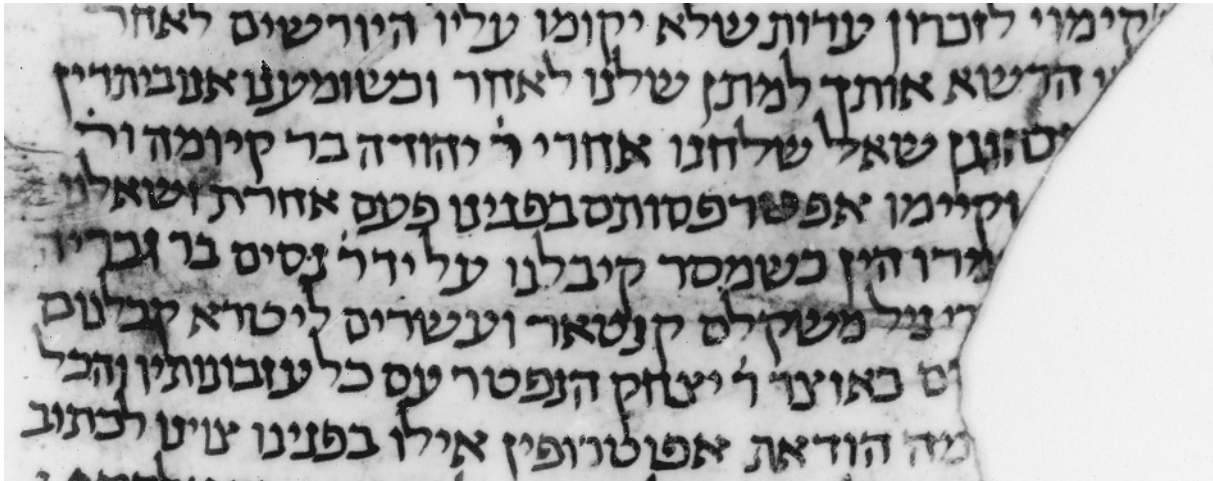 קימוי לזכרון עדות שלא יקומו עליו היורשים לאחר
הרשא אותך למתן שלנו לאחר וכשומענו אנו בית דין
שאל שלחנו אחרי ר׳ יהודה בר קיומה ור׳
וקיימו אפטרפסותם בפנינו פעם אחרת ושאלנו
הין כשמסר קיבלנו על יד ר׳ נסים בר
משקלם קנטאר ועשרים ליטרא קבלנום
באוצר ר׳ יצחק הנפטר עם כל עזבונותיו והכל
הודאת אפוטרופין אילו בפנינו צוינו לכתוב